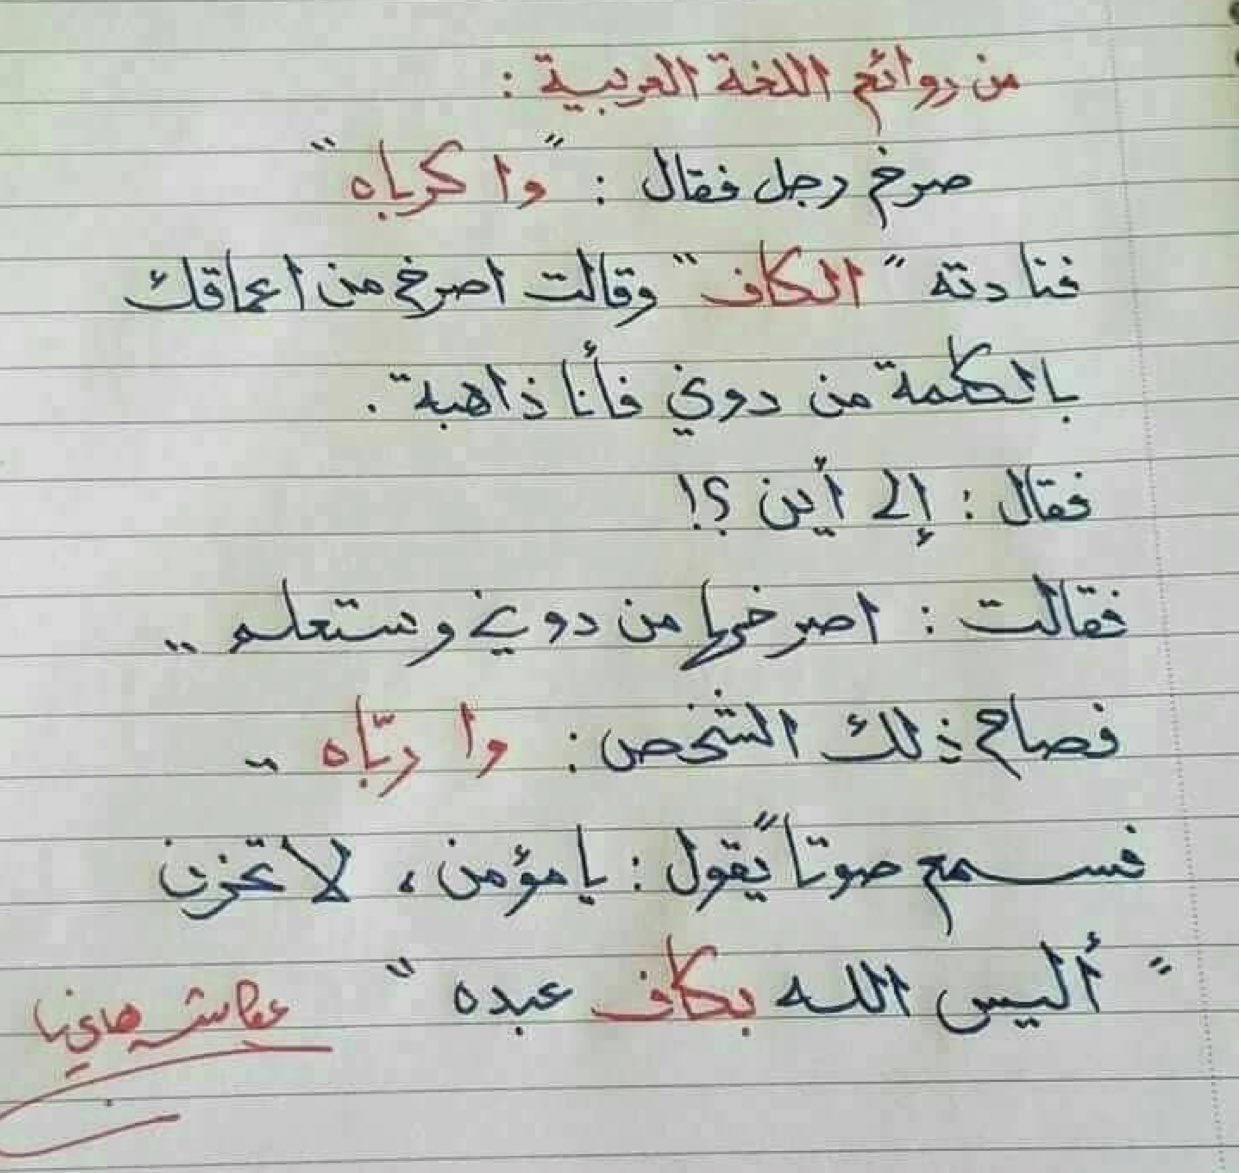 من روائع اللغة العربية :
صرخ رجل فقال : "وا كرباه"
فنادته "الكاف" وقالت اصرخ من اعماقك
بالكلمة من دوني فأنا ذاهبة".
فقال : إلى أين ؟!
فقالت : اصرخها من دوني وستعلم ..
فصاح ذلك الشخص : وا ربّاه ..
فسمع صوتاً يقول : يا مؤمن ، لا تحزن
"أليس الله بكاف عبده"